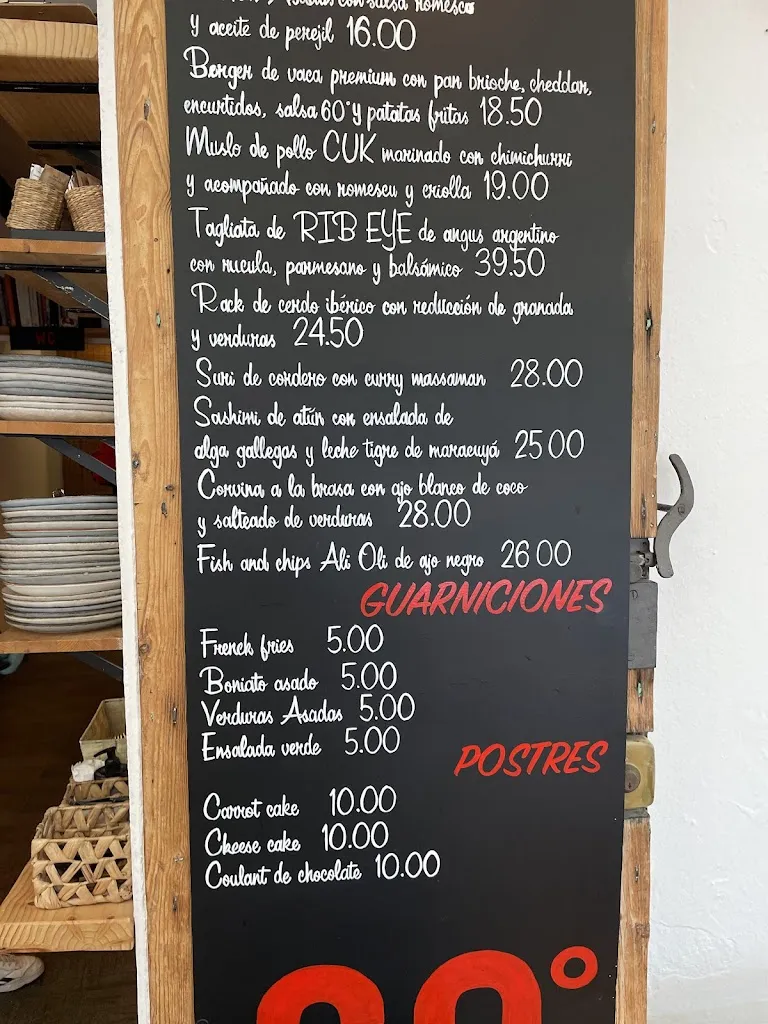 con salsa romesco
y aceite de perejil 16.00
Burger de vaca premium con pan brioche, cheddar,
encurtidos, salsa 60° y patatas fritas 18.50
Muslo de pollo CUK marinado con chimichurri
y acompañado con romescu y criolla 19.00
Tagliata de RIB EYE de angus argentino
con rucula, parmesano y balsámico 39.50
Rack de cerdo ibérico con reducción de granada
y verduras 24.50
Suri de cordero con curry massaman 28.00
Sashimi de atún con ensalada de
alga gallegas y leche tigre de maracuyá 25 00
Corvina a la brasa con ajo blanco de coco
y salteado de verduras 28.00
Fish and chips Ali Oli de ajo negro 26 00
GUARNICIONES
French fries 5.00
Boniato asado 5.00
Verduras Asadas 5.00
Ensalada verde 5.00
POSTRES
Carrot cake 10.00
Cheese cake 10.00
Coulant de chocolate 10.00
WC